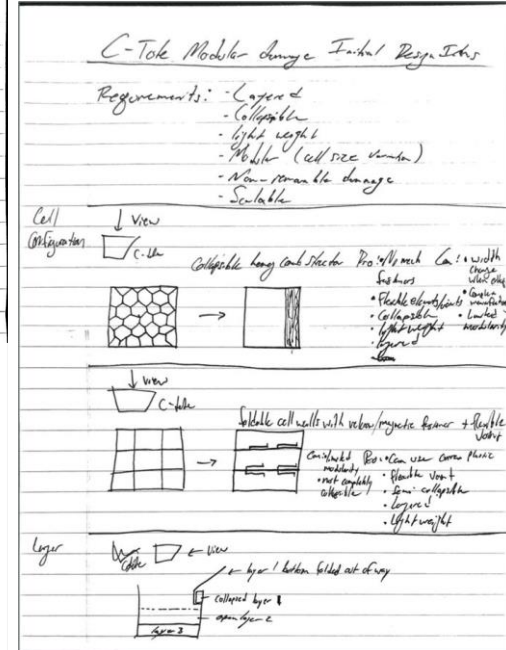 C-Tote Modular dunnage Initial Design Ideas
Requirements: - Layered
- Collapsible
- light weight
- Modular (cell size variation)
- Non-removable dunnage
- Scalable
Cell
Configuration
View
C-tote
Collapsible honey comb structure Pro: • No mech
fasteners
• Flexible
• Collapsible
• light weight
• layered
Con: • width
change
when
• Complex
• Limited
modularity
View
C-tote
foldable cell walls with velcro/magnetic fastener + flexible
joint
Con: limited
modularity
• not completely
collapsible
Pro: • Can use
• flexible joint
• Semi collapsible
• Layered
• Light weight
Layer
View
layer 1 bottom folded out of way
collapsed layer 1
open layer 2
layer 3